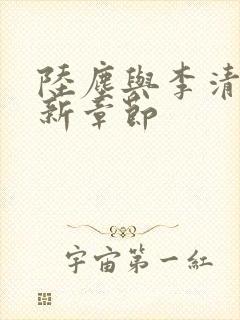 陸塵與李清
新章節
宇宙第一紅